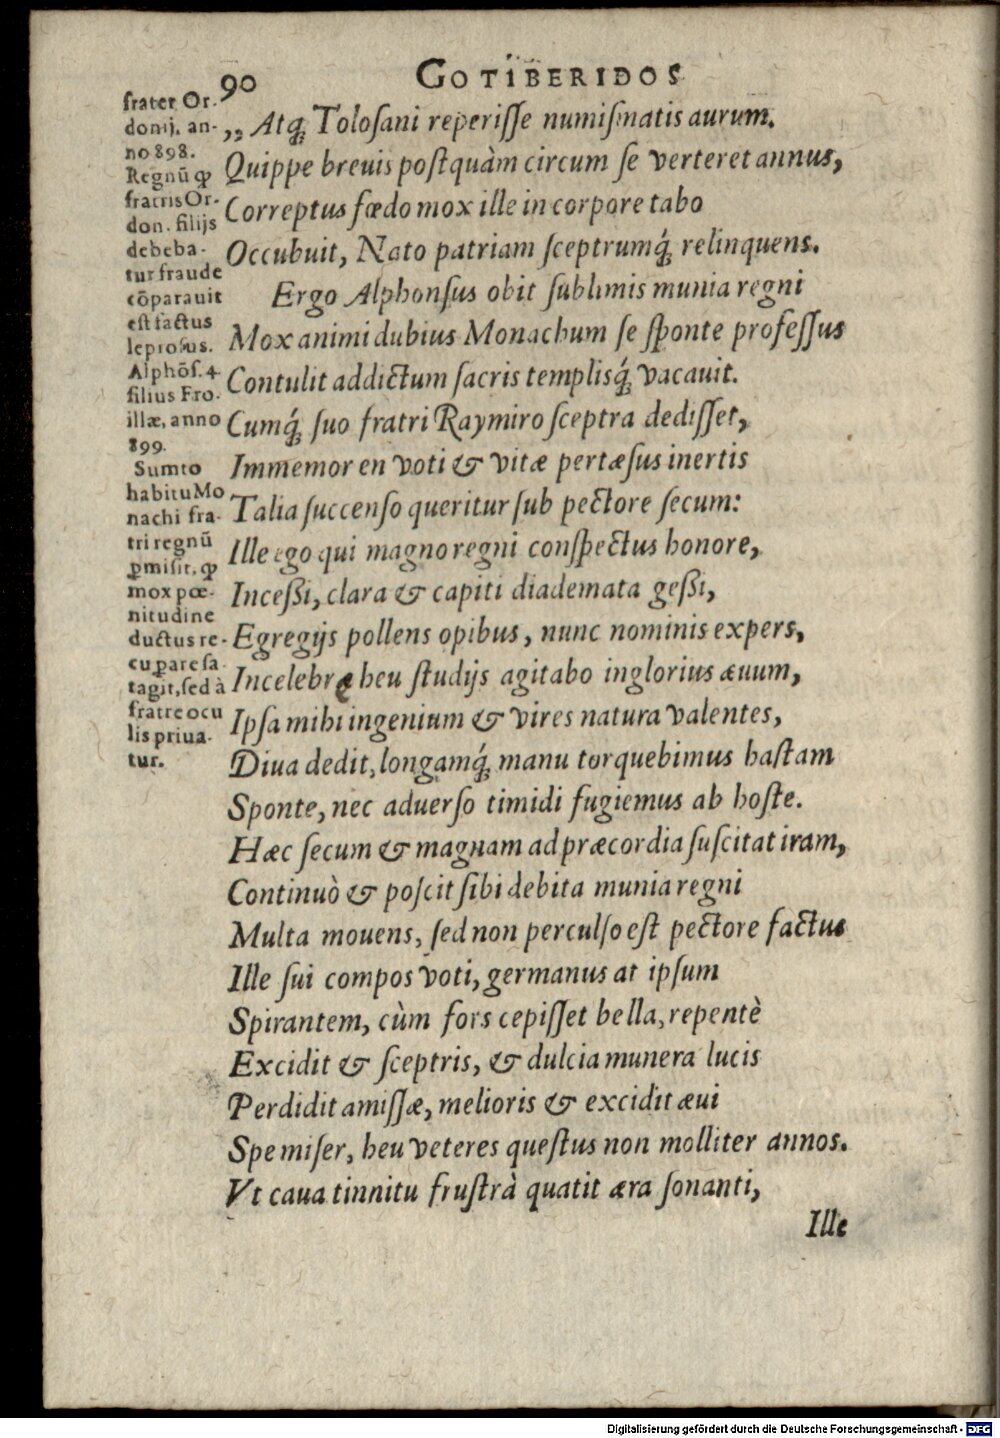 90
GOTIBERIDOS
frater Or-
donij. an-
no 898.
Regnũ ꝙ
fratris Or-
don. filijs
debeba-
tur fraude
cõparauit
est factus
leprosus.
Alphõs. 4
filius Fro-
illæ, anno
899.
Sumto
habitu Mo
nachi fra-
tri regnũ
ꝑmisit, ꝙ
mox pœ-
nitudine
ductus re-
cuꝑare sa-
tagit, sed à
fratre ocu
lis priua-
tur.
„ Atq; Tolosani reperisse numismatis aurum.
Quippe breuis postquàm circum se verteret annus,
Correptus fœdo mox ille in corpore tabo
Occubuit, Nato patriam sceptrumq́; relinquens.
Ergo Alphonsus obit sublimis munia regni
Mox animi dubius Monachum se sponte professus
Contulit addictum sacris templisq́; vacauit.
Cumq́; suo fratri Raymiro sceptra dedisset,
Immemor en voti & vitæ pertæsus inertis
Talia succenso queritur sub pectore secum:
Ille ego qui magno regni conspectus honore,
Incessi, clara & capiti diademata gessi,
Egregijs pollens opibus, nunc nominis expers,
Incelebrę heu studijs agitabo inglorius æuum,
Ipsa mihi ingenium & vires natura valentes,
Diua dedit, longamq́; manu torquebimus hastam
Sponte, nec aduerso timidi fugiemus ab hoste.
Hæc secum & magnam ad præcordia suscitat iram,
Continuò & poscit sibi debita munia regni
Multa mouens, sed non perculso est pectore factus
Ille sui compos voti, germanus at ipsum
Spirantem, cùm fors cepisset bella, repentè
Excidit & sceptris, & dulcia munera lucis
Perdidit amissæ, melioris & excidit æui
Spe miser, heu veteres questus non molliter annos.
Vt caua tinnitu frustrà quatit æra sonanti,
Ille
Digitalisierung gefördert durch die Deutsche Forschungsgemeinschaft - DFG